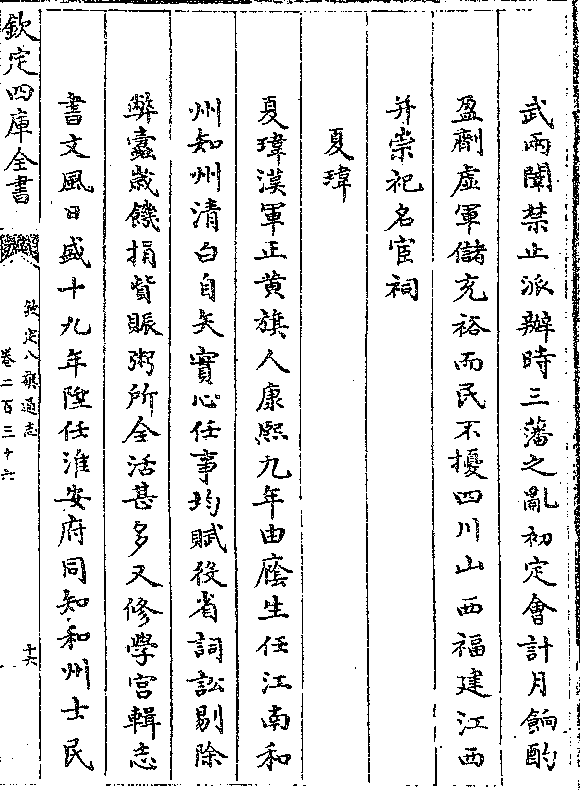 武兩闈禁止派辦時三藩之亂初定會計月餉酌
盈劑虛軍儲充裕而民不擾四川山西福建江西
并崇祀名宦祠
夏瑋
夏瑋漢軍正黃旗人康熙九年由廕生任江南和
州知州清白自矢實心任事均賦役省詞訟剔除
弊蠹歲饑捐貲賑粥所全活甚多又修學宮輯志
書文風日盛十九年陞任淮安府同知和州士民
欽定四庫全書
欽定八旗通志
卷二百三十六
十六